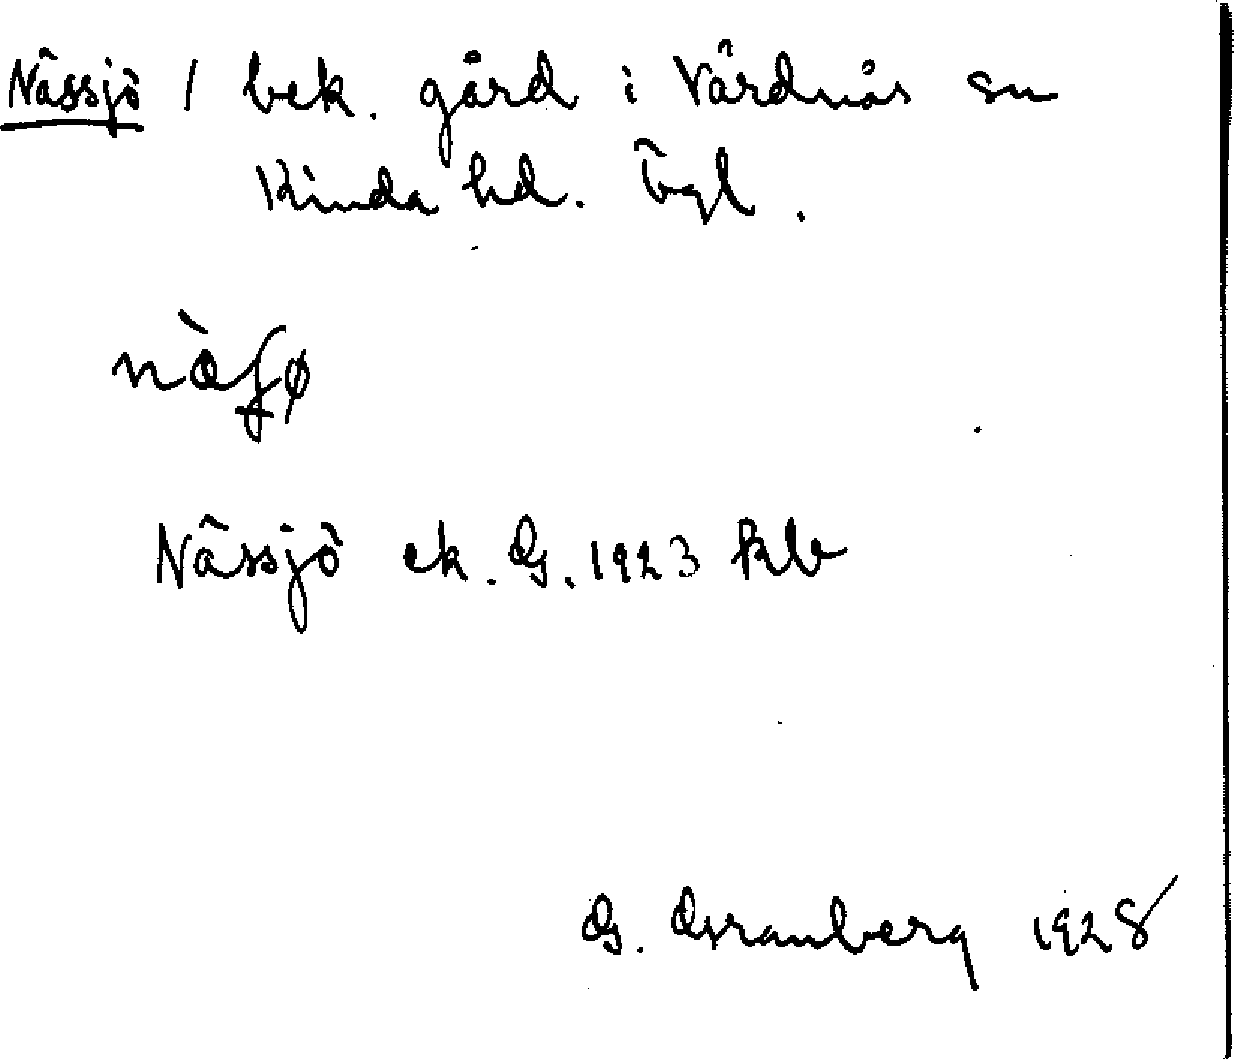 Nässjö / bek. gård i Vårdnäs sn
Kinda hd. Ögl.
Nässjö ek. G. 1923 kb
G. Granberg 1928